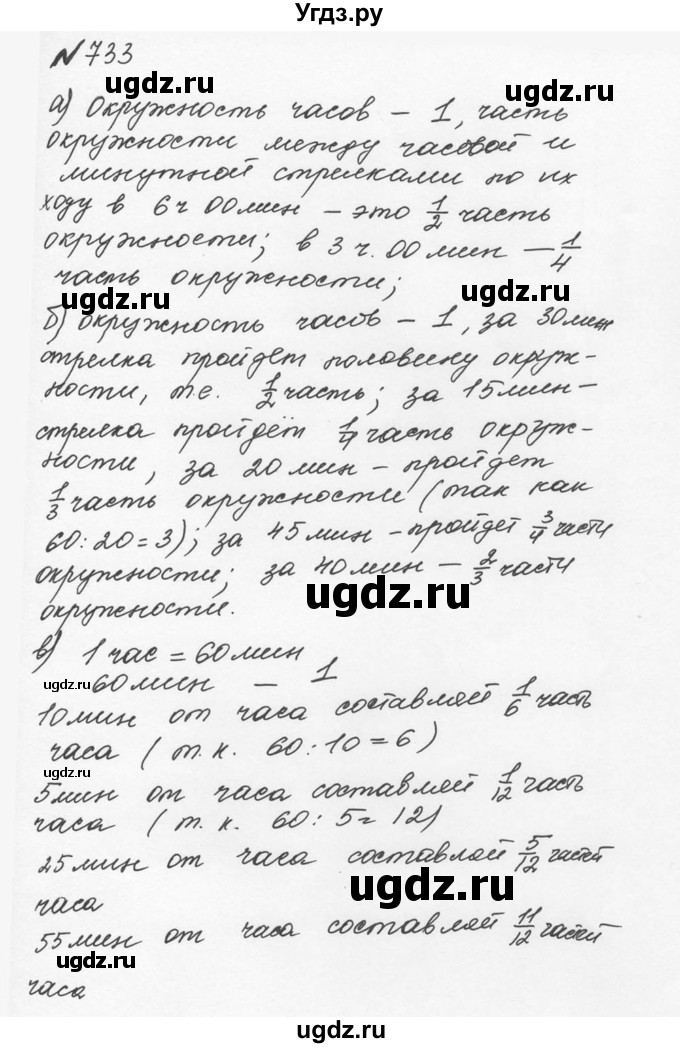 Угдз.ру
№733
а) Окружность часов – 1, часть
окружности между часовой и
минутной стрелками по их
ходу в 6ч 00мин – это 1/2 часть
окружности; в 3 ч. 00 мин – 1/4
часть окружности;
ugdz.ru
ugdz.ru
б) окружность часов – 1, за 30мин
стрелка пройдет половину окруж-
ности, т.е. 1/2 часть; за 15мин –
стрелка пройдёт 1/4 часть окруж-
ности, за 20 мин – пройдет
1/3 часть окружности (так как
60:20=3); за 45мин – пройдет 3/4 части
окружности; за 40мин – 2/3 части
ugdz.ru
окружности.
в) 1 час = 60мин
ugdz.ru 60мин – 1
10мин от часа составляет 1/6 часть
часа (т.к. 60:10=6)
ugdz.ru
5мин от часа составляет 1/12 часть
часа (т.к. 60:5=12)
25мин от часа составляет 5/12 частей
ugdz.ru
часа
55мин от часа составляет 11/12 частей
ugdz.ru
часа
ugdz.ru